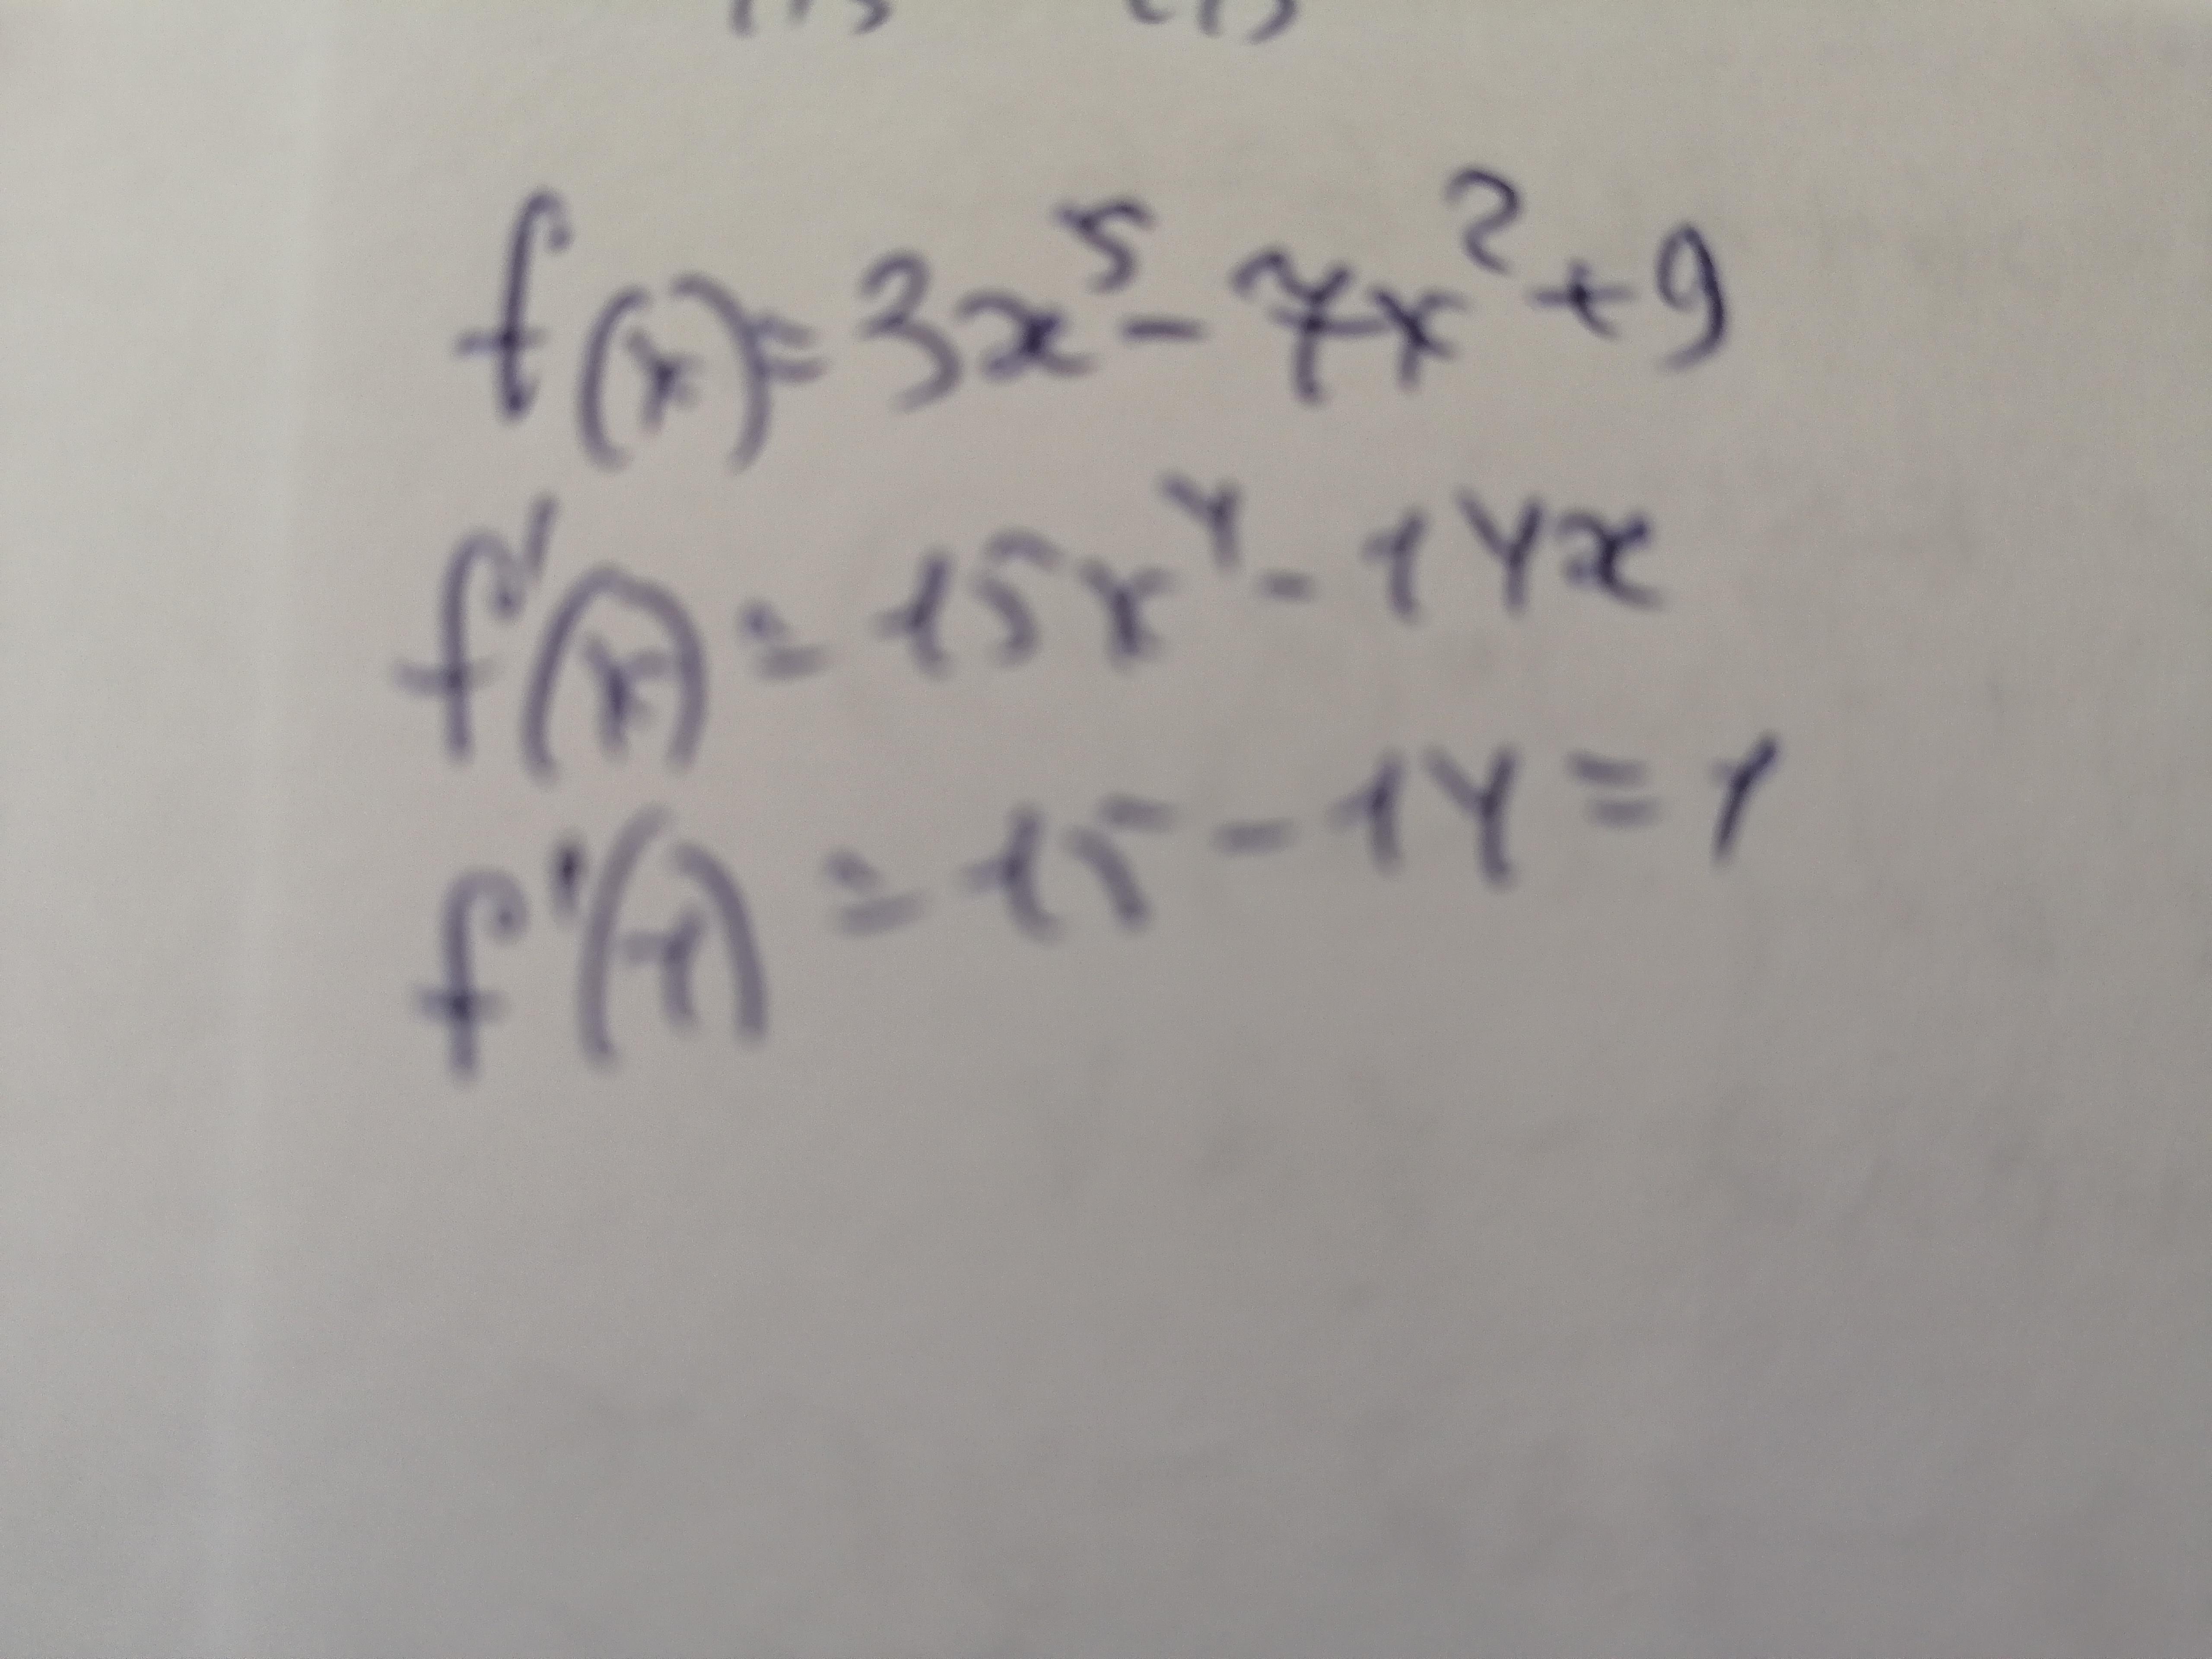 f(x) = 3x⁵ - 7x² + 9
f'(x) = 15x⁴ - 14x
f'(1) = 15 - 14 = 1